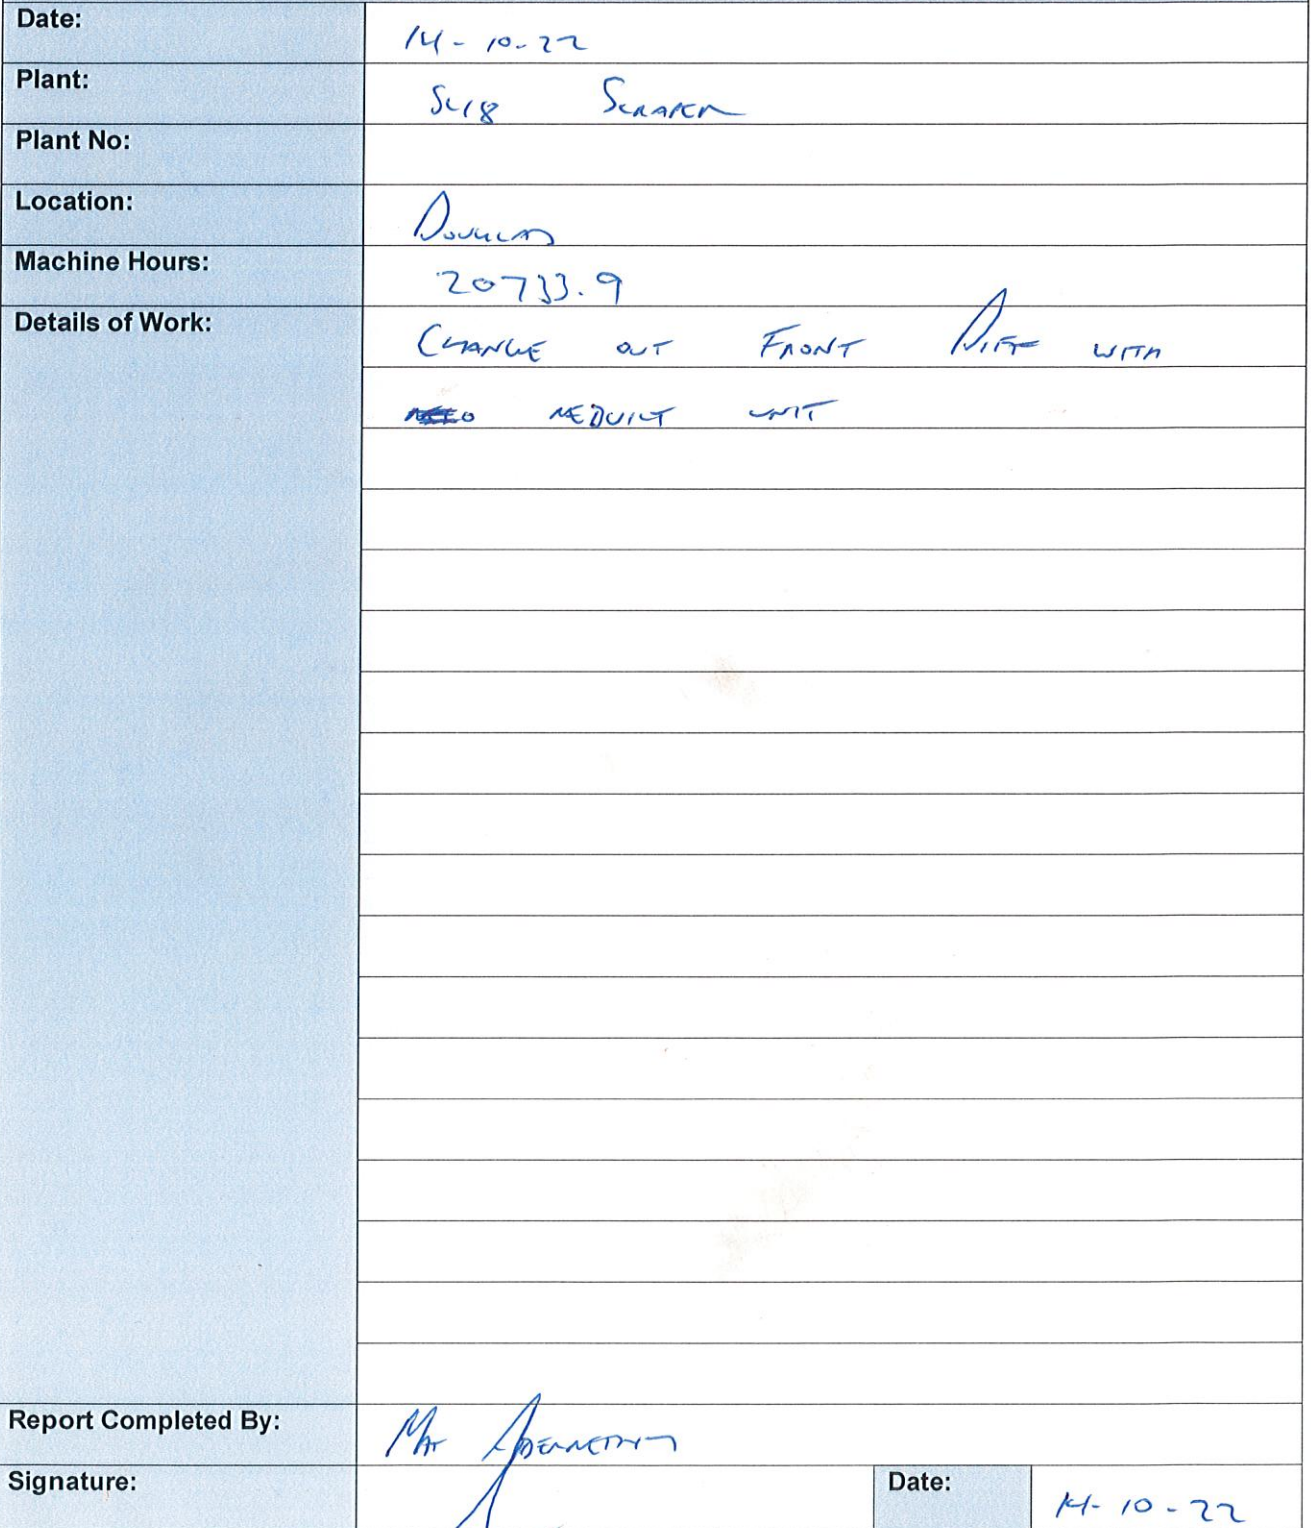 Date: 14-10-22
Plant: SC18 SCRAPER
Plant No:
Location: DOUGLAS
Machine Hours: 20733.9
Details of Work: CHANGE OUT FRONT DIFF WITH
REBUILT UNIT
Report Completed By: MAT ABERNETHY
Signature: Date: 14-10-22